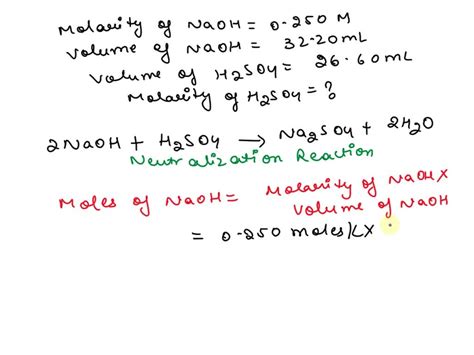 Molarity of NaOH = 0.250 M
Volume of NaOH = 32.20mL
Volume of H2SO4 = 26.60mL
Molarity of H2SO4 = ?
2NaOH + H2SO4 → Na2SO4 + 2H2O
Neutralization Reaction
Moles of NaOH = Molarity of NaOH X
Volume of NaOH
= 0.250 moles/L X